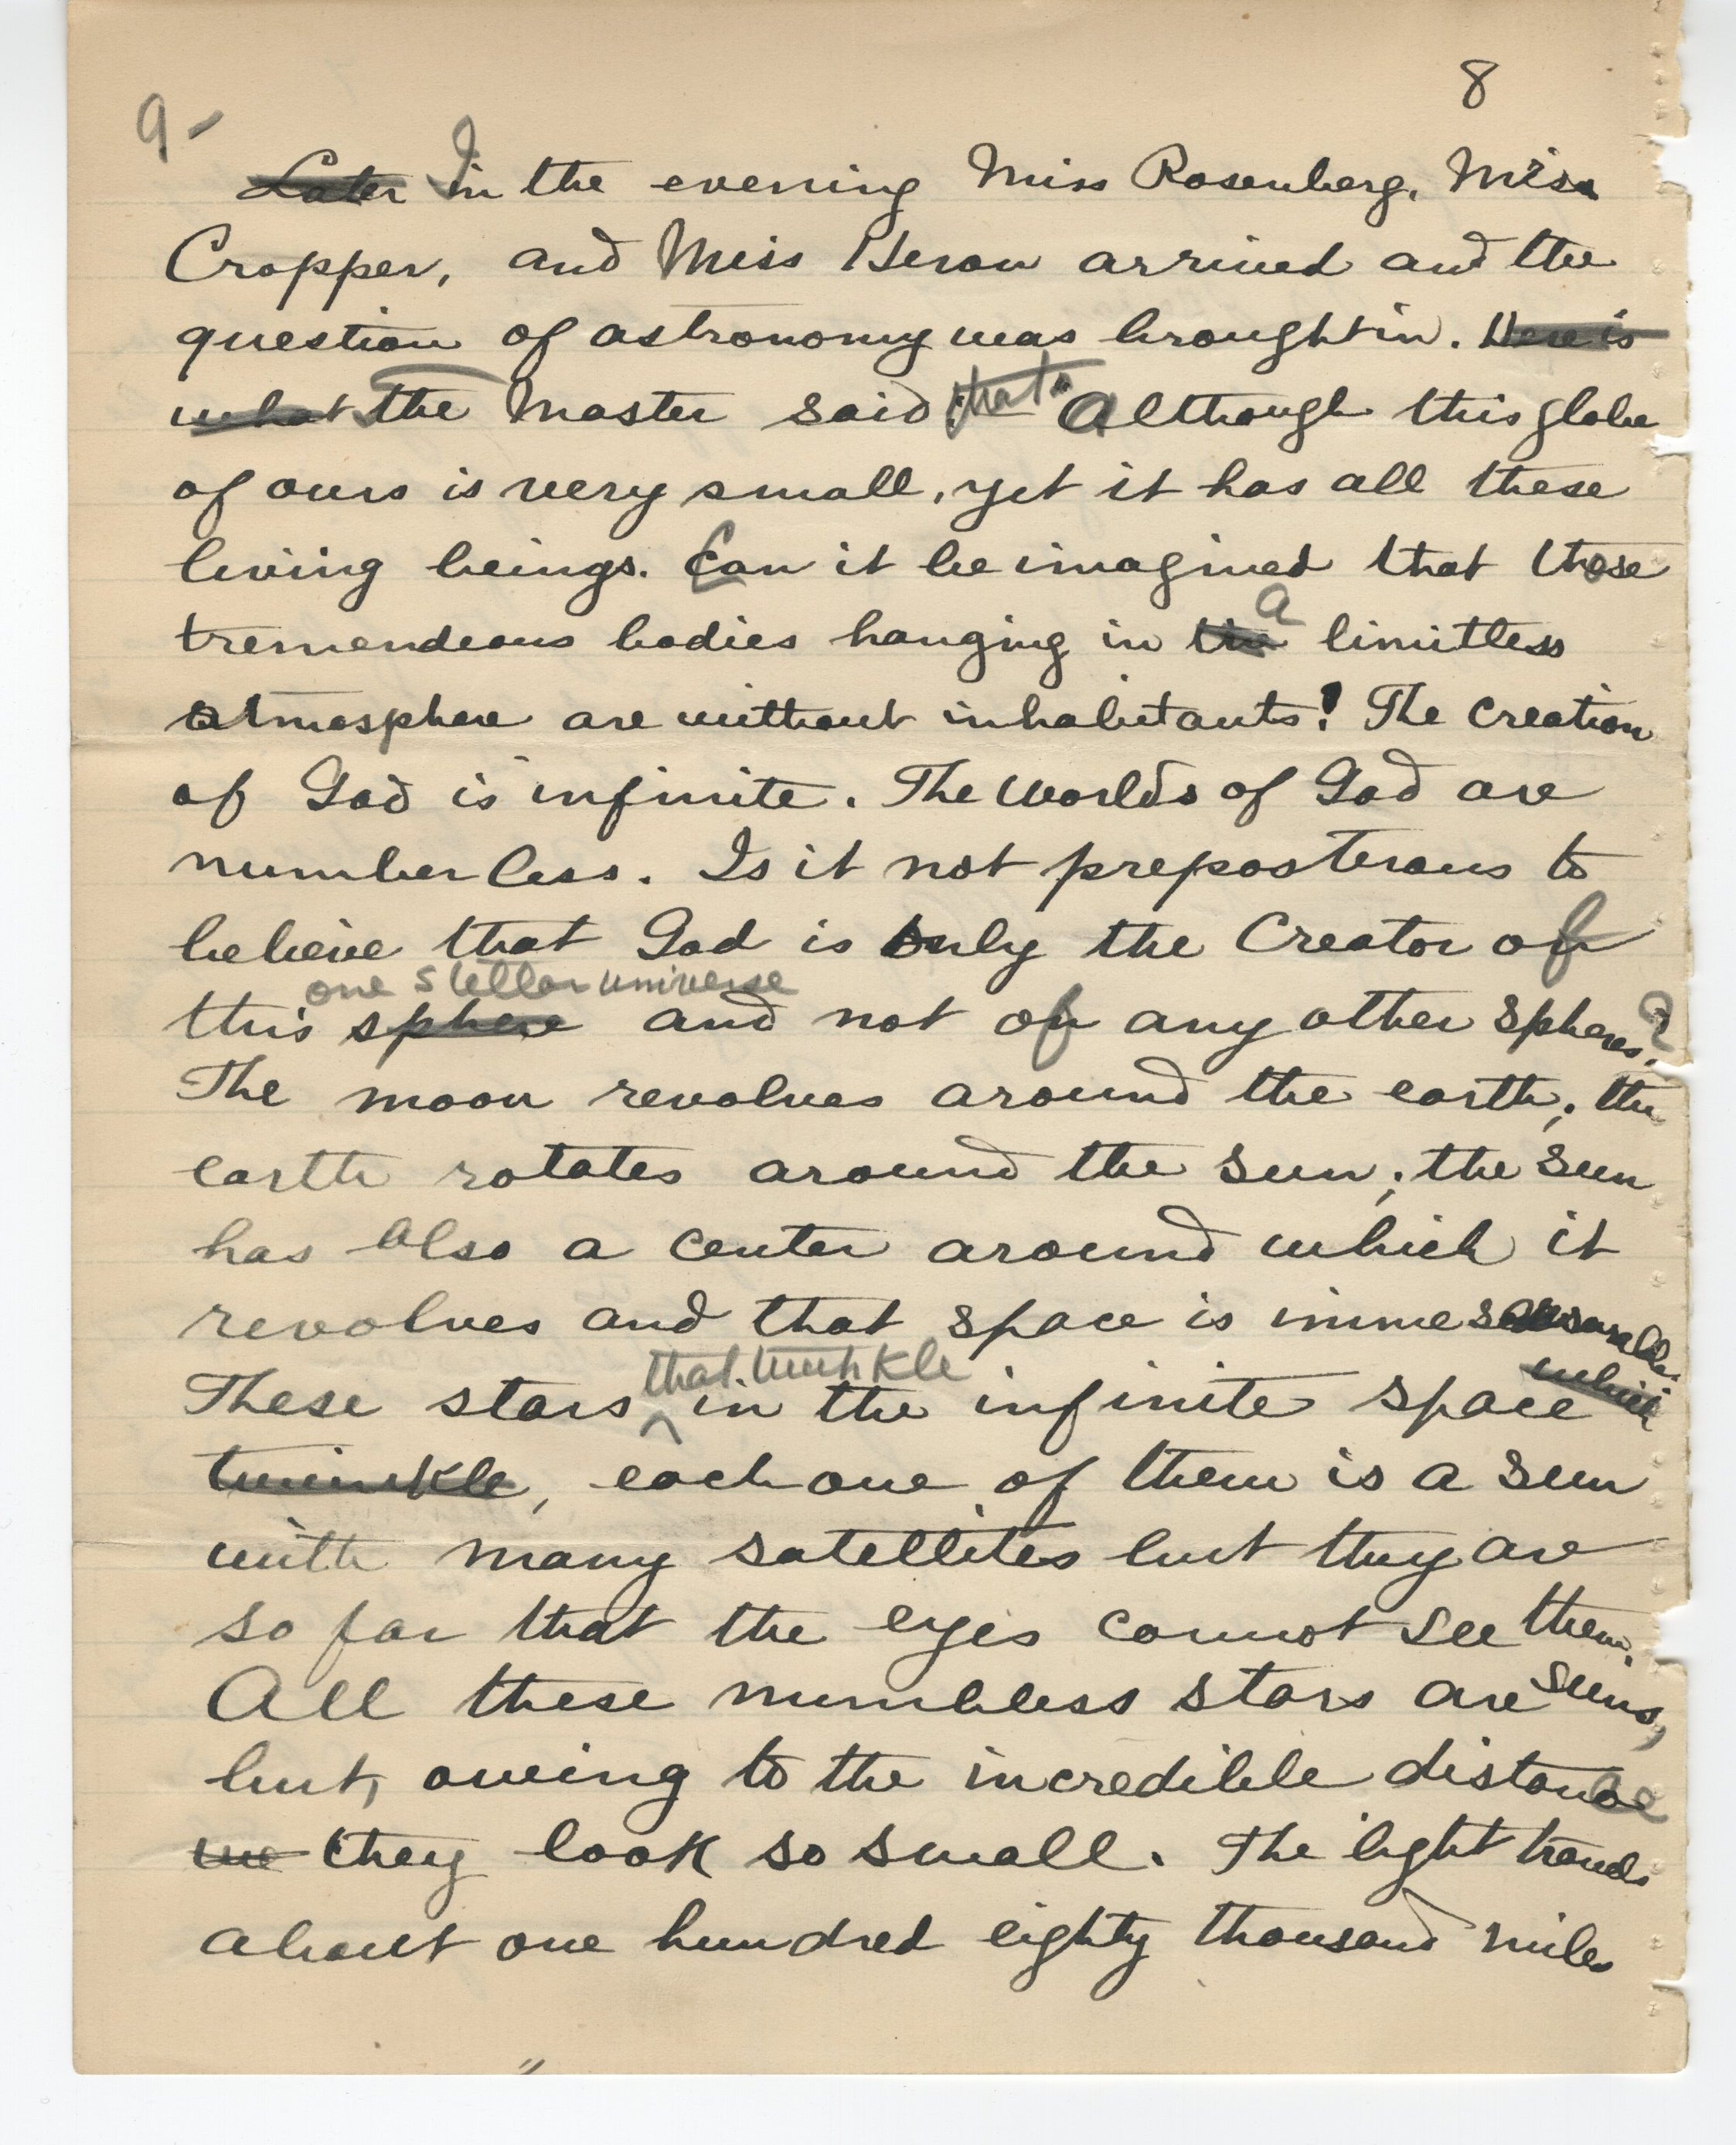 8
9-
Later In the evening Miss Rosenberg, Miss
Cropper, and Miss Heron arrived and the
question of astronomy was brought in. Here is
what the Master said: that "Although this globe
of ours is very small, yet it has all these
living beings. Can it be imagined that those
tremendeous bodies hanging in the a limitless
atmosphere are without inhabitants! The creation
of God is infinite. The worlds of God are
numberless. Is it not preposterous to
believe that God is only the Creator of
one stellar universe
this sphere and not of any other spheres?
The moon revolves around the earth; the
earth rotates around the sun; the sun
has also a center around which it
revolves and that space is immesasurable.
that twinkle
These stars in the infinite space which
twinkle, each one of them is a sun
with many satellites but they are
so far that the eyes cannot see them.
All these numbless stars are suns,
but, oweing to the incredible distance
we they look so small. The light travels
about one hundred eighty thousand miles